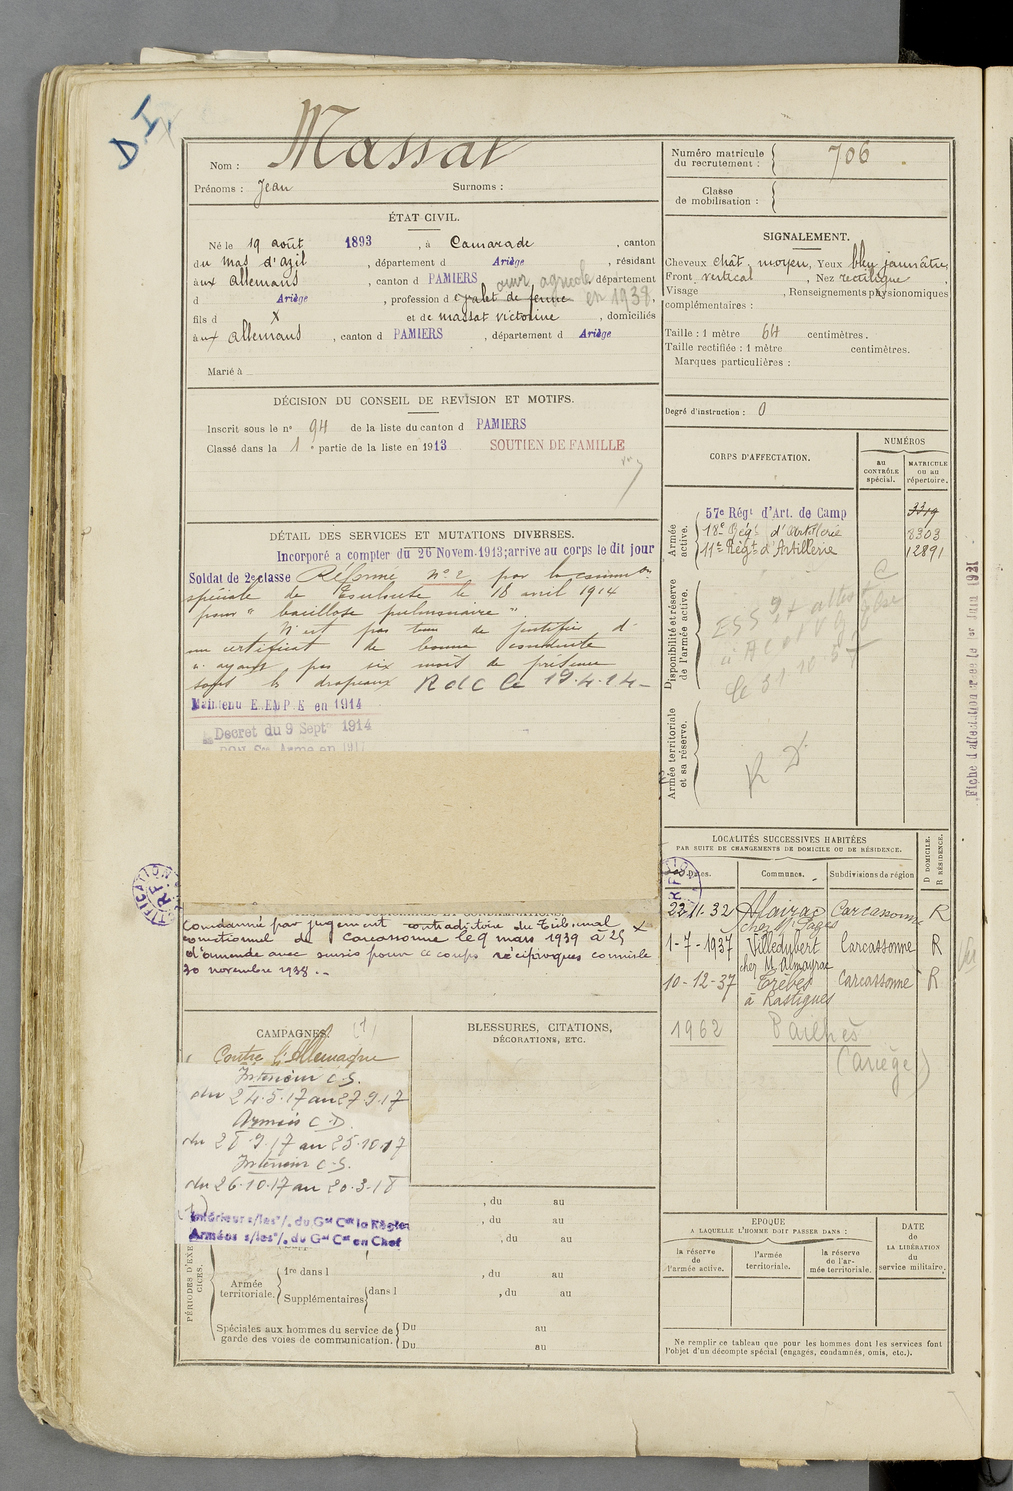 D I
Nom : Massat
Prénoms : Jean Surnoms :
ÉTAT CIVIL.
Né le 19 août 1893, à Camarade, canton
du mas d'azil, département d Ariège, résidant
aux allemans, canton d PAMIERS, département
ouvr. agricole
d Ariège, profession d valet de ferme en 1938,
fils d X et de massat victorine, domiciliés
aux allemans, canton d PAMIERS, département d Ariège
Marié à
DÉCISION DU CONSEIL DE REVISION ET MOTIFS.
Inscrit sous le n° 94 de la liste du canton d PAMIERS
Classé dans la 1e partie de la liste en 1913 SOUTIEN DE FAMILLE
DÉTAIL DES SERVICES ET MUTATIONS DIVERSES.
Incorporé a compter du 26 Novem.1913; arrive au corps le dit jour
Soldat de 2e classe Réformé n° 2 par la common
spéciale de Toulouse le 18 avril 1914
pour " bacillose pulmonaire "
N'est pas tenu de justifier d'
un certificat de bonne conduite
n'ayant pas six mois de présence
sous les drapeaux R d C le 19.4.14
Maintenu E.EMPE en 1914
Decret du 9 Septe 1914
Condamné par jugement contradictoire du Tribunal
correctionnel de Carcassonne le 9 mars 1939 à 25 X
d'amende avec sursis pour coups réciproques commis le
30 novembre 1938.
CAMPAGNES. (1)
Contre l'Allemagne
Intérieur C.S.
du 24.5.17 au 27.9.17
Armées C.D.
du 28.9.17 au 25.10.17
Intérieur C.S.
du 26.10.17 au 20.3.18
(1)
Intérieur s/les °/. du Gal Ct la Région
Armées s/les °/. du Gal Ct en Chef
BLESSURES, CITATIONS,
DÉCORATIONS, ETC.
, du au
, du au
, du au
PÉRIODES D'EXERCICES.
Armée territoriale.
1re dans l , du au
Supplémentaires dans l , du au
Spéciales aux hommes du service de
garde des voies de communication.
Du au
Du au
Numéro matricule
du recrutement : 706
Classe
de mobilisation :
SIGNALEMENT.
Cheveux chât. moyen, Yeux bleu jaunâtre,
Front vertical, Nez rectiligne,
Visage , Renseignements physionomiques
complémentaires :
Taille : 1 mètre 64 centimètres.
Taille rectifiée : 1 mètre centimètres.
Marques particulières :
Degré d'instruction : 0
CORPS D'AFFECTATION.
NUMÉROS
au CONTRÔLE spécial.
MATRICULE OU AU répertoire.
Armée active.
57e Régt d'Art. de Camp 3319
18e Régt d'Artillerie 8303
11e Régt d'Artillerie 12891
Disponibilité et réserve
de l'armée active.
C
le 31.10.57
Armée territoriale
et sa réserve.
R D
LOCALITÉS SUCCESSIVES HABITÉES
PAR SUITE DE CHANGEMENTS DE DOMICILE OU DE RÉSIDENCE.
D DOMICILE.
R RÉSIDENCE.
Dates. Communes. Subdivisions de région
22-11-32 Alairac Carcassonne R
chez Mr Pagès
1-7-1937 Villedubert Carcassonne R
chez M. Almayrac
10-12-37 Trèbes Carcassonne R
à Rastigues
1962 Pailhès
(Ariège)
EPOQUE
A LAQUELLE L'HOMME DOIT PASSER DANS :
la réserve de l'armée active.
l'armée territoriale.
la réserve de l'armée territoriale.
DATE
de
LA LIBÉRATION
du
service militaire.
Ne remplir ce tableau que pour les hommes dont les services font
l'objet d'un décompte spécial (engagés, condamnés, omis, etc.).
Fiche d'affectation